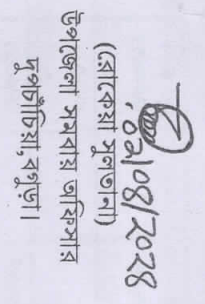 ০২/০৪/২০২৪
(রোকেয়া সুলতানা)
উপজেলা সমবায় অফিসার
দুপচাঁচিয়া, বগুড়া।